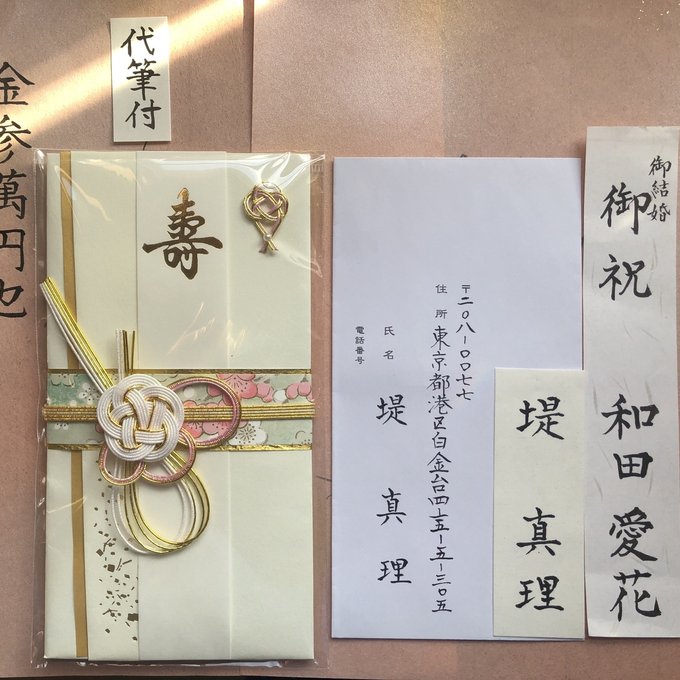 金参萬円也
代筆付
壽
〒二〇八-〇〇七七
住所 東京都港区白金台四十五-五-三〇五
氏名 堤 真理
電話番号
堤 真理
御結婚
御祝 和田 愛花